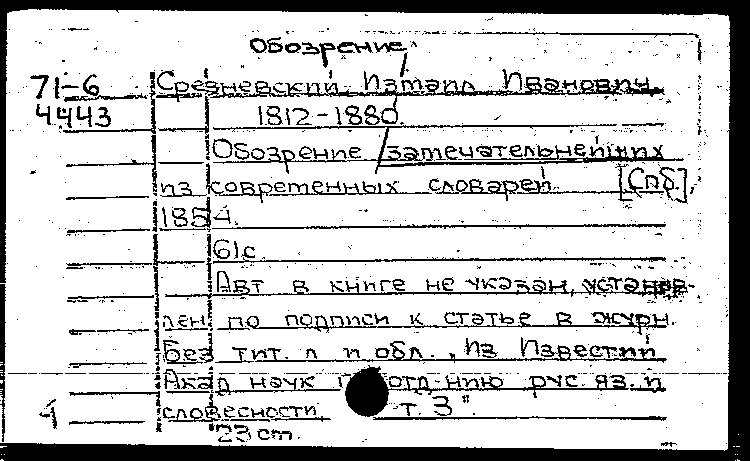 Обозрение
71-6 Срезневский, Измаил Иванович,
4443 1812-1880.
Обозрение замечательнейших
из современных словарей. [Спб.],
1854.
61с.
Авт. в книге не указан, установ-
лен по подписи к статье в журн.
Без тит. л и обл., Из Известий
Акад наук отд-нию рус. яз. и
словесности, т. 3".
4 23 cm.